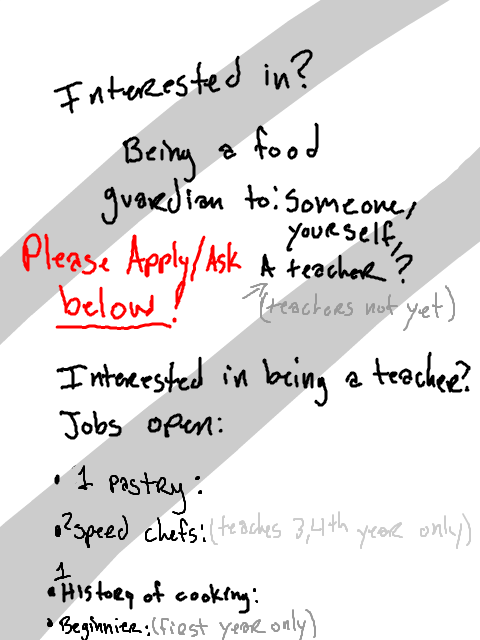 Interested in?
Being a food
guardian to: Someone,
yourself,
Please Apply/Ask
below!
A teacher?
(teachers not yet)
Interested in being a teacher?
Jobs open:
• 1 pastry:
• 2 speed chefs: (teaches 3,4th year only)
• 1 History of cooking:
• Beginnier: (first year only)